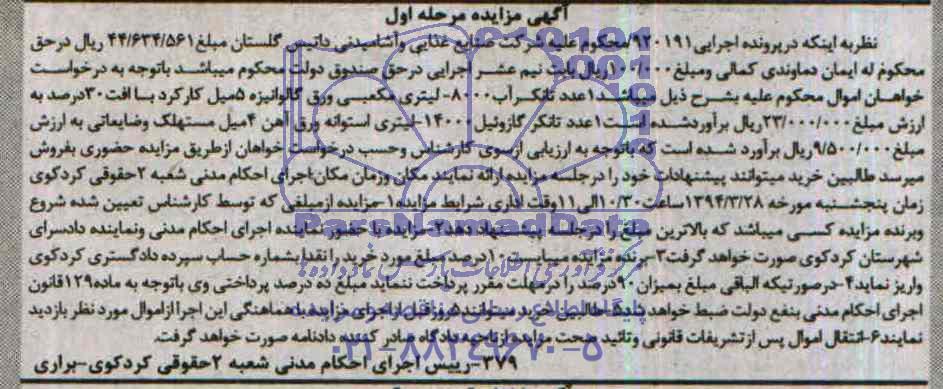 آگهی مزایده مرحله اول
نظر به اینکه در پرونده اجرایی ۹۲۰۱۹۱ محکوم علیه شرکت صنایع غذایی و آشامیدنی داتیس گلستان مبلغ ۴۴/۶۳۴/۵۶۱ ریال در حق
محکوم له ایمان دماوندی کمالی و مبلغ ۱۰۰/۰۰۰ ریال بابت نیم عشر اجرایی در حق صندوق دولت محکوم میباشد باتوجه به درخواست
خواهان اموال محکوم علیه بشرح ذیل میباشد ۱ عدد تانکر آب ۸۰۰۰- لیتری مکعبی ورق گالوانیزه ۵ میل کارکرد با افت ۳۰ درصد به
ارزش مبلغ ۲۳/۰۰۰/۰۰۰ ریال برآورد شده است ۱ عدد تانکر گازوئیل ۱۴۰۰۰- لیتری استوانه ورق آهن ۴ میل مستهلک وضایعاتی به ارزش
مبلغ ۹/۵۰۰/۰۰۰ ریال برآورد شده است که باتوجه به ارزیابی ازسوی کارشناس وحسب درخواست خواهان ازطریق مزایده حضوری بفروش
میرسد طالبین خرید میتوانند پیشنهادات خود را در جلسه مزایده ارائه نمایند مکان وزمان مکان: اجرای احکام مدنی شعبه ۲ حقوقی کردکوی
زمان پنجشنبه مورخه ۱۳۹۴/۳/۲۸ ساعت ۱۰/۳۰ الی ۱۱ وقت اداری شرایط مزایده ۱-مزایده ازمبلغی که توسط کارشناس تعیین شده شروع
وبرنده مزایده کسی میباشد که بالاترین مبلغ را درجلسه پیشنهاد دهد ۲-مزایده با حضور نماینده اجرای احکام مدنی ونماینده دادسرای
شهرستان کردکوی صورت خواهد گرفت ۳-برنده مزایده میبایست ۱۰ درصد مبلغ مورد خرید را نقدا بشماره حساب سپرده دادگستری کردکوی
واریز نماید ۴-درصورتیکه الباقی مبلغ بمیزان ۹۰ درصد را درمهلت مقرر پرداخت ننماید مبلغ ده درصد پرداختی وی باتوجه به ماده ۱۲۹ قانون
اجرای احکام مدنی بنفع دولت ضبط خواهد شد ۵-طالبین خرید میتوانند ۵ روز قبل از اجرای مزایده با هماهنگی این اجرا ازاموال مورد نظر بازدید
نمایند ۶-انتقال اموال پس از تشریفات قانونی وتائید صحت مزایده ازناحیه دادگاه صادر کننده دادنامه صورت خواهد گرفت.
۳۷۹-رییس اجرای احکام مدنی شعبه ۲ حقوقی کردکوی-براری
ParsNamadData
۰۲۱-۸۸۳۴۹۶۷۰-۵